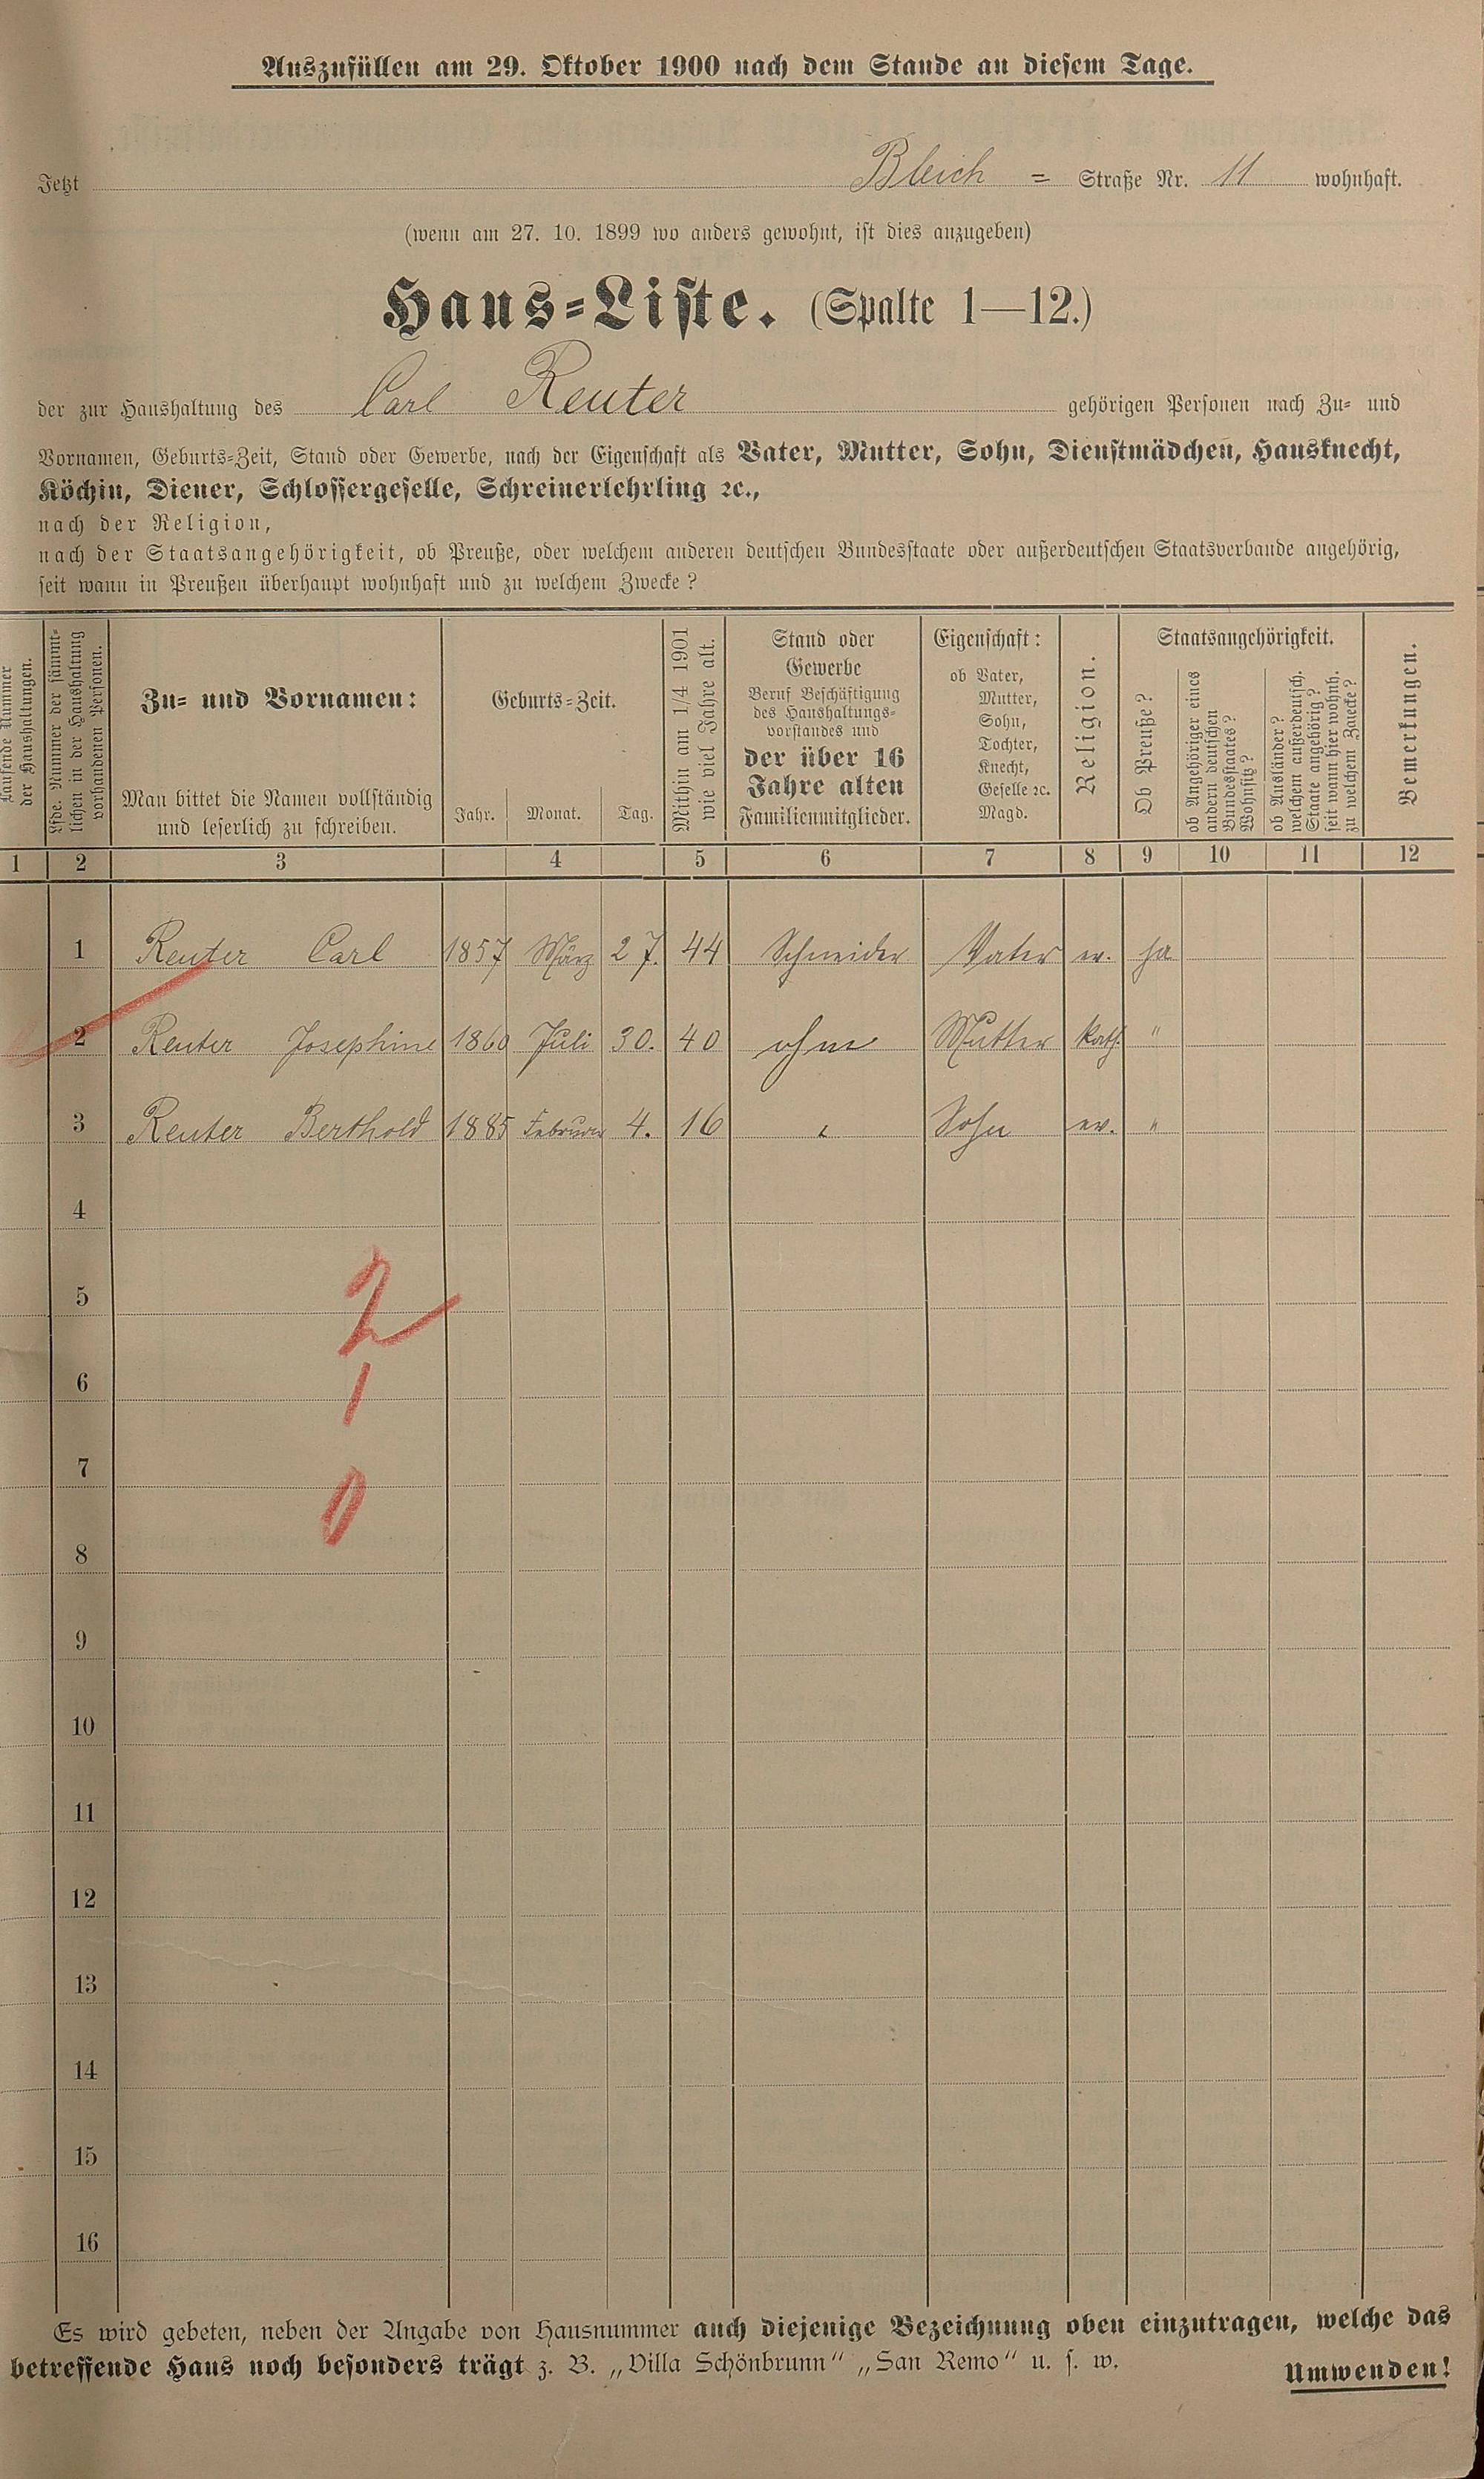 Auszufüllen am 29. Oktober 1900 nach dem Stande an diesem Tage.
Jetzt Bleich = Straße Nr. 11 wohnhaft.
(wenn am 27. 10. 1899 wo anders gewohnt, ist dies anzugeben)
Haus=Liste. (Spalte 1—12.)
der zur Haushaltung des Carl Reuter gehörigen Personen nach Zu= und
Vornamen, Geburts=Zeit, Stand oder Gewerbe, nach der Eigenschaft als Vater, Mutter, Sohn, Dienstmädchen, Hausknecht,
Köchin, Diener, Schlossergeselle, Schreinerlehrling ꝛc.,
nach der Religion,
nach der Staatsangehörigkeit, ob Preuße, oder welchem anderen deutschen Bundesstaate oder außerdeutschen Staatsverbande angehörig,
seit wann in Preußen überhaupt wohnhaft und zu welchem Zwecke?
Laufende Nummer
der Haushaltungen.
Lfde. Nummer der sämmt-
lichen in der Haushaltung
vorhandenen Personen.
Zu= und Vornamen:
Man bittet die Namen vollständig
und leserlich zu schreiben.
Geburts=Zeit.
Jahr. Monat. Tag.
Mithin am 1/4 1901
wie viel Jahre alt.
Stand oder
Gewerbe
Beruf Beschäftigung
des Haushaltungs=
vorstandes und
der über 16
Jahre alten
Familienmitglieder.
Eigenschaft:
ob Vater,
Mutter,
Sohn,
Tochter,
Knecht,
Geselle ꝛc.
Magd.
Religion.
Staatsangehörigkeit.
Ob Preuße?
ob Angehöriger eines
andern deutschen
Bundesstaates?
Wohnsitz?
ob Ausländer?
welchem außerdeutsch.
Staate angehörig?
seit wann hier wohnh.
zu welchem Zwecke?
Bemerkungen.
1 2 3 4 5 6 7 8 9 10 11 12
1 Reuter Carl 1857 März 27. 44 Schneider Vater ev. ja
2 Reuter Josephine 1860 Juli 30. 40 ohne Mutter kath. "
3 Reuter Berthold 1885 Februar 4. 16 " Sohn ev. "
4
5
2
6
1
7
0
8
9
10
11
12
13
14
15
16
Es wird gebeten, neben der Angabe von Hausnummer auch diejenige Bezeichnung oben einzutragen, welche das
betreffende Haus noch besonders trägt z. B. „Villa Schönbrunn" „San Remo" u. s. w.
Umwenden!